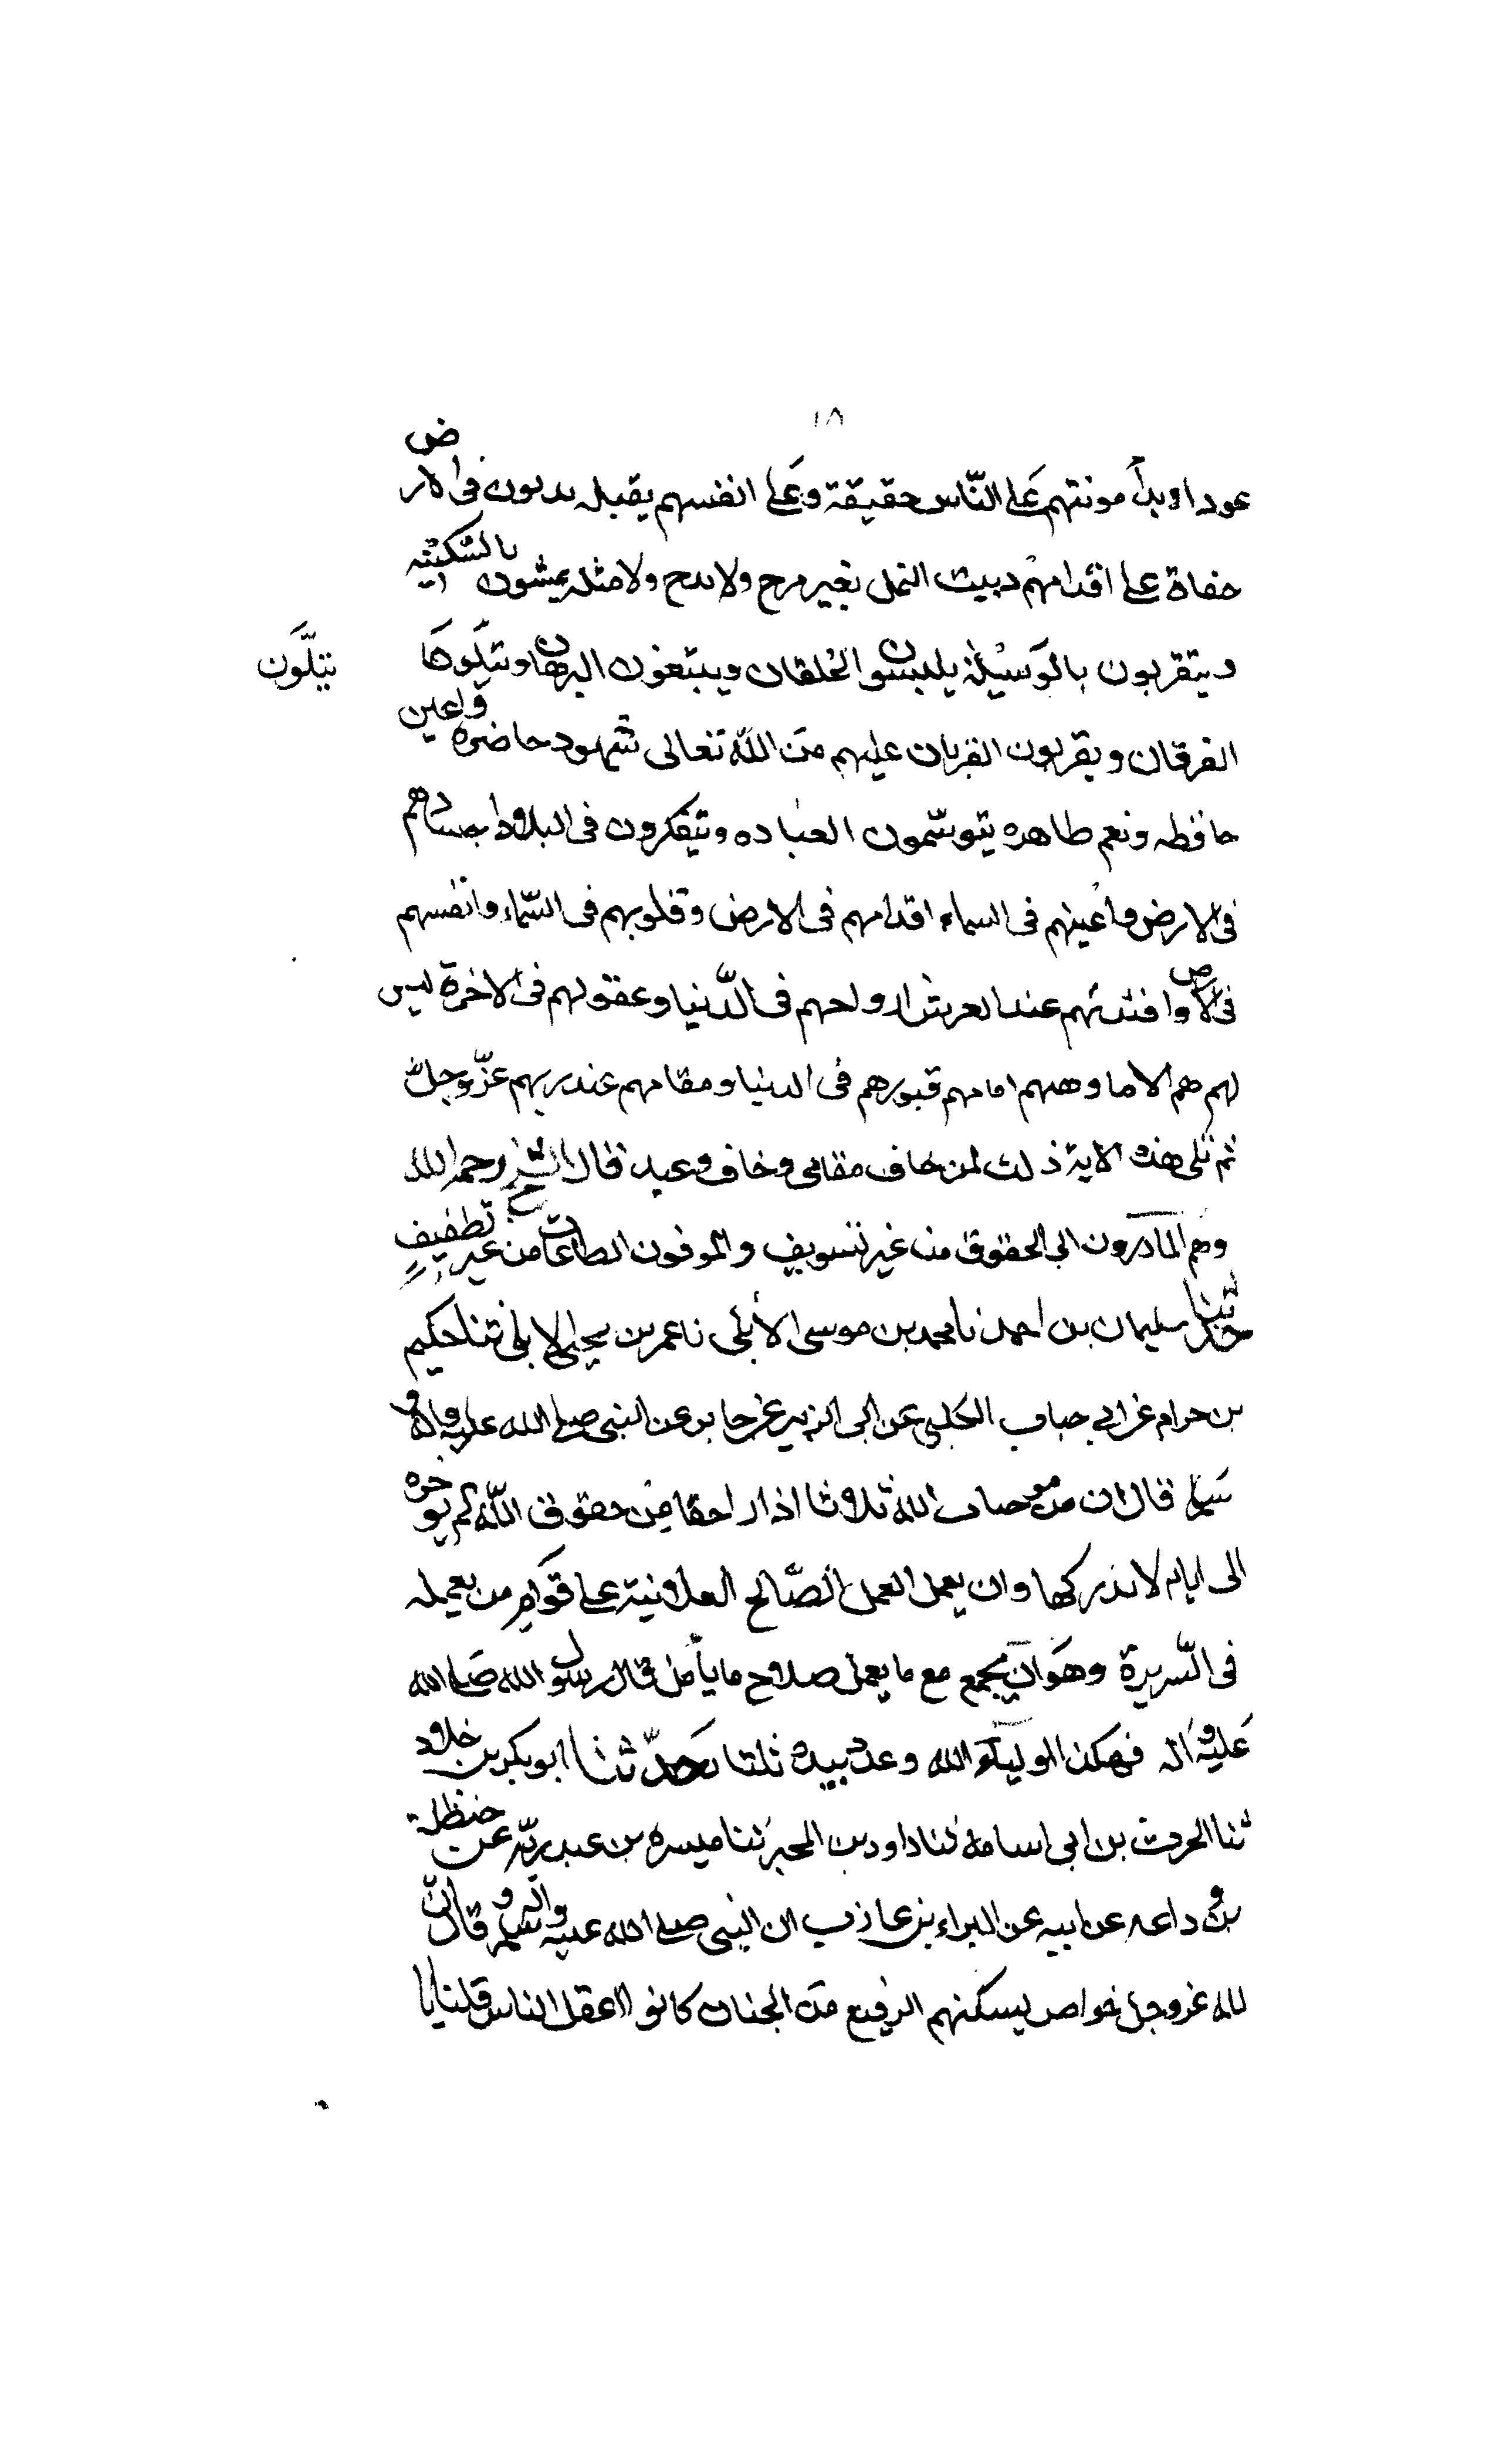 ١٨
عودا وبدأ مونتهم على الناس حقيقة وعلى انفسهم يقبله يدبون فى الارض
حفاة على اقدامهم دبيب النمل بغير مرح ولا بدح ولا مثله يمشون بالسّكينه
ويتقربون بالوَسيْلة يلبسوان الخلقان ويبتغون البرهان ويتلَونَ يتلون
الفرقان ويقربون القربان عليهم من الله تعالى شهود حاضره واعين
حافظه ونعم طاهره يتوسّمون العباده ويتفكرون فى البلاد اجسادهم
فى الارض واعينهم فى السماء اقدامهم فى الارض وقلوبهم فى السّماء وانفسهم
فى الارض وافئدتهم عند العرش ارواحهم فى الدّنيا وعقولهم فى الاخرة ليس
لهم هم الا ما وههم امامهم قبورهم فى الدنيا ومقامهم عند ربهم عزّ وجلّ
ثم تلى هذه الاية ذلك لمن خاف مقامى وخاف وعيد قال الشيخ رحمه الله
وهم المبادرون الى الحقوق من غير تسويف والموفون الطاعات من غير تطفيفٍ
حدثنا سليمان بن احمد نا محمد بن موسى الأبلى نا عمر بن يحيى الابلى ثنا حكيم
بن حرام عن ابي جباب الكلبى عن ابى الزبير عن جابر عن النبى صلى الله عليه واله و
سلم قال ان من موصاب الله ثلاثا اذا راحقا من حقوق الله لم يوخره
الى ايام لا ندركها وان يعمل العمل الصّالح العلانية على قوام من يعمله
فى السّريرة وهوان يجمع مع ما يعمل صلاح ما يأمل قال رسول الله صلى الله
عليه واله فهكذا لوليآء الله وعد بيده ثلثا حَدّثنا ابو بكر بن خلاد
ثنا الحرث بن ابى اسامة ثنا داود بن المحبر ثنا ميسره بن عبد ربّه عن حنظلة
بن وداعه عن ابيه عن البراء بن عازب ان النبى صلى الله عليه واله وسلم قال انّ
لله عز وجل خواص يسكنهم الرفيع من الجنان كانوا اعقل الناس قلنا يا